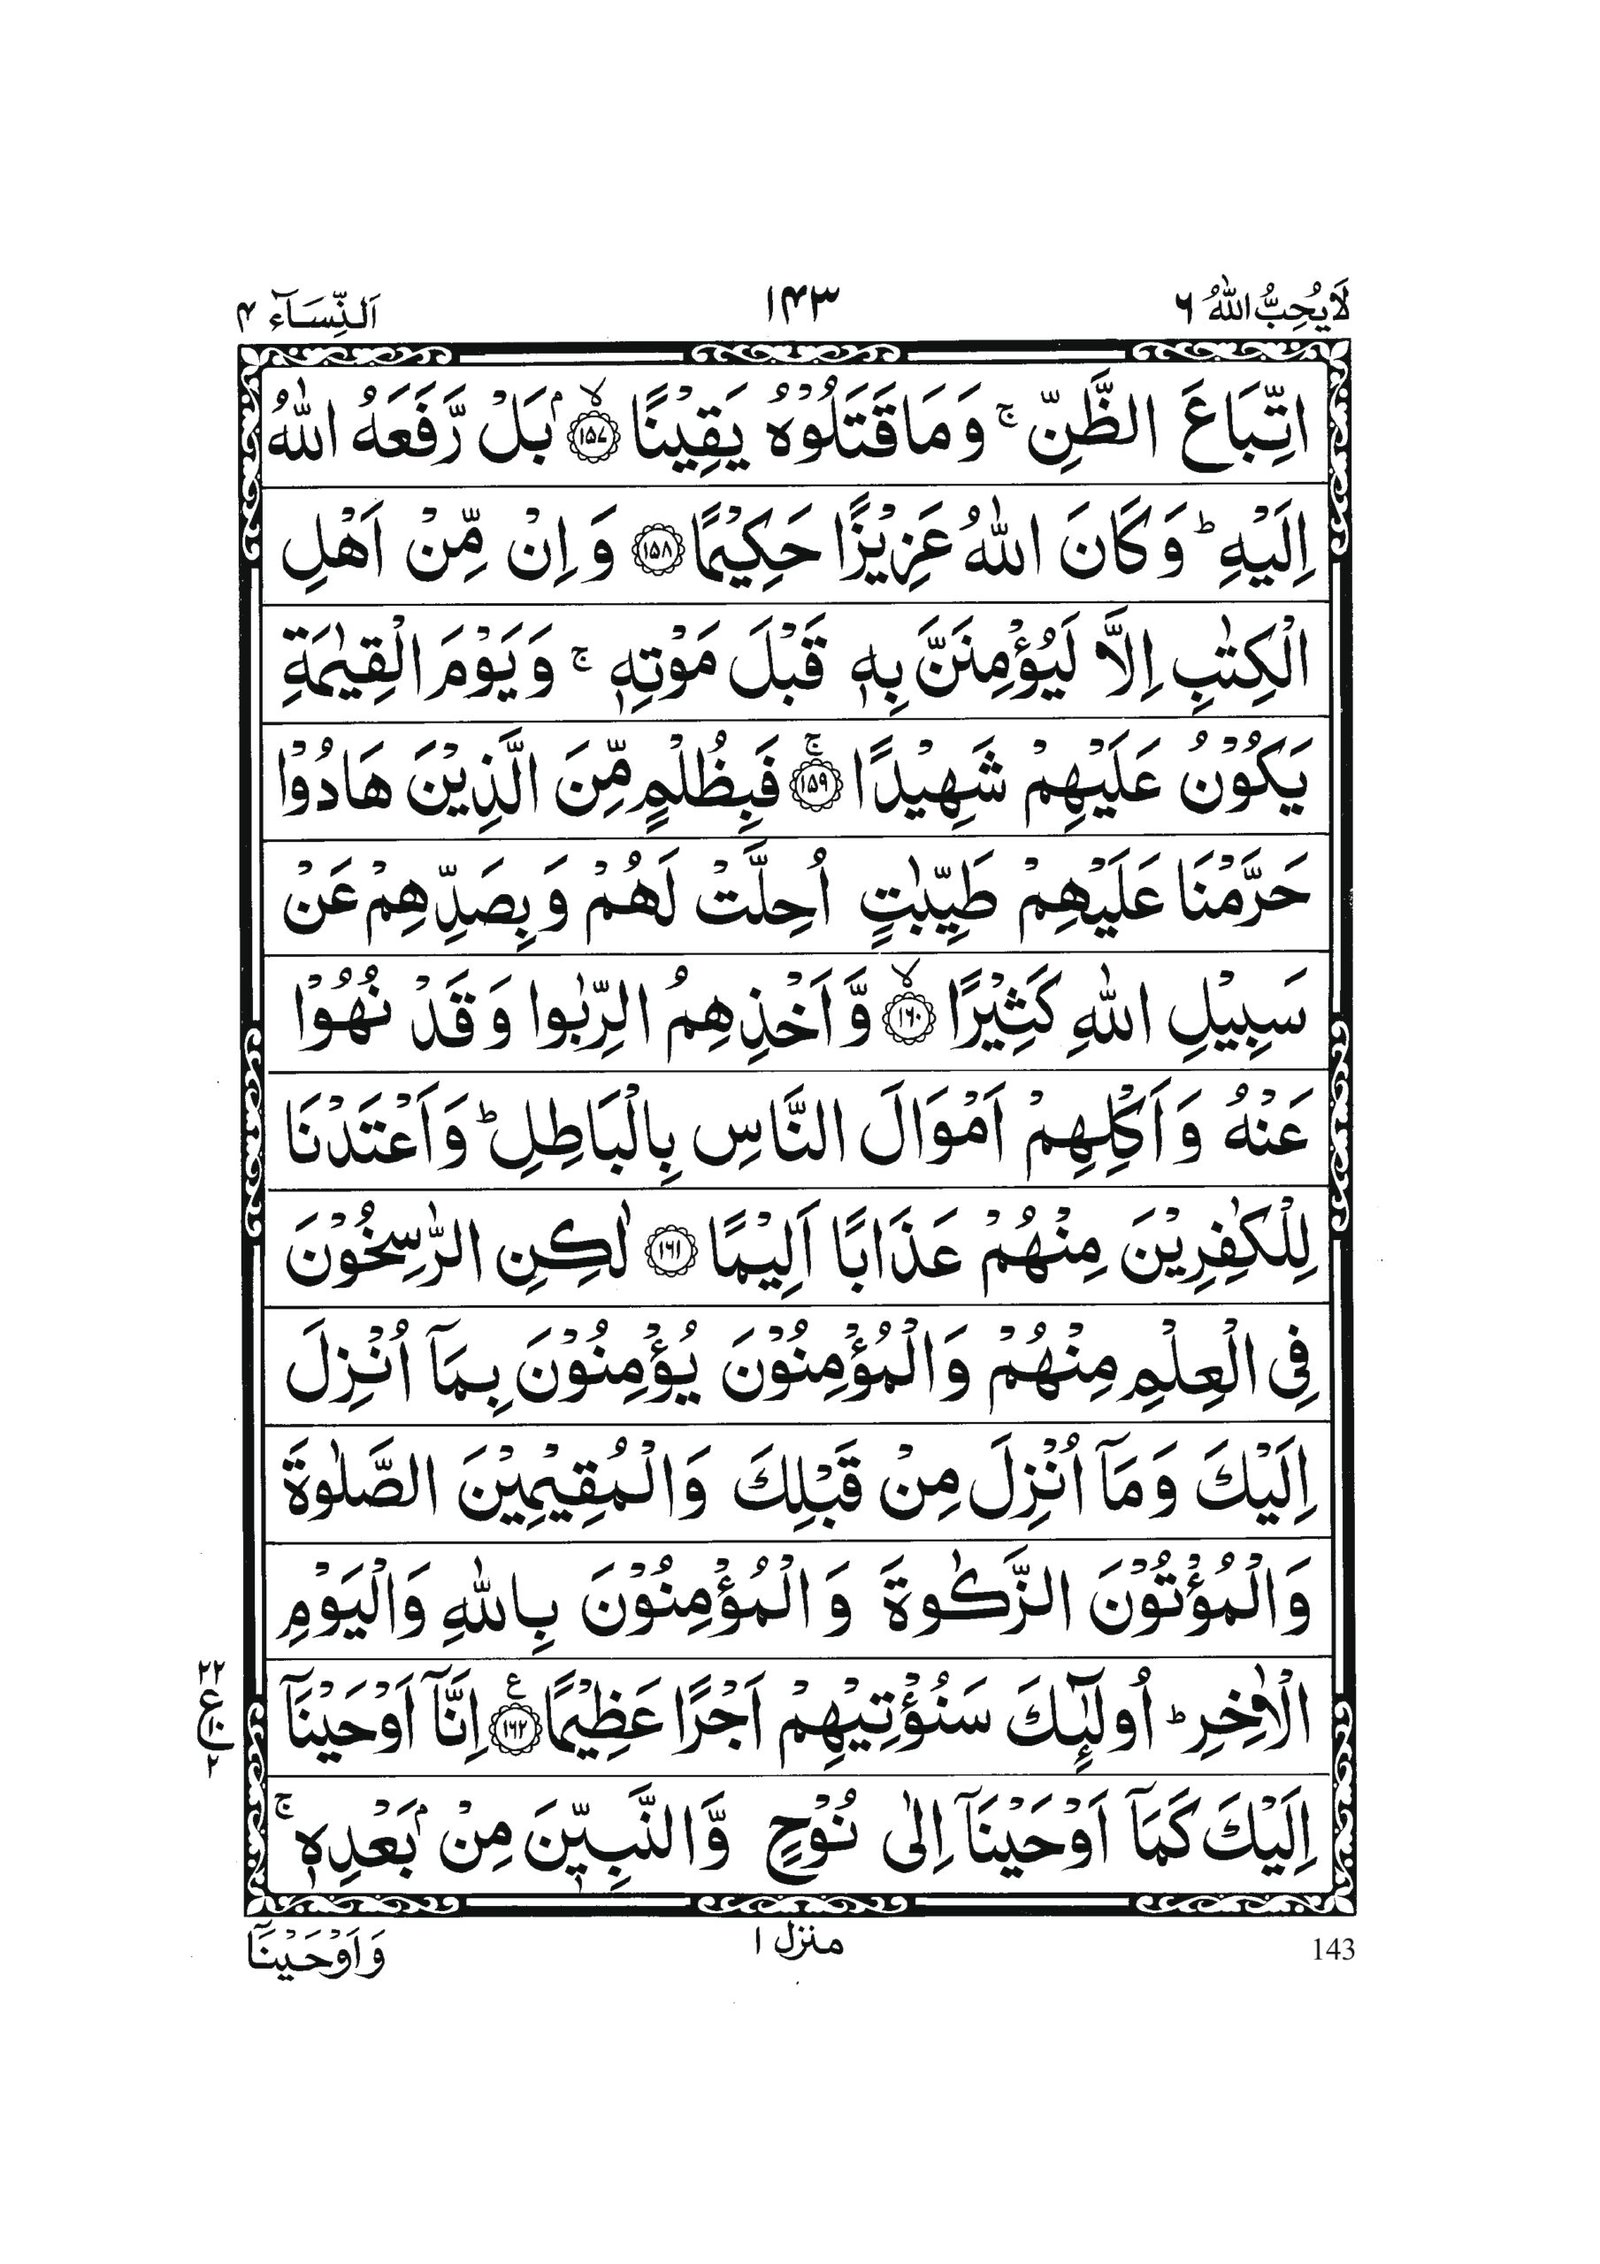 لَا يُحِبُّ اللّٰهُ ٦ ١۴٣ اَلنِّسَآء ۴
اتِّبَاعَ الظَّنِّ ۚ وَمَا قَتَلُوْهُ يَقِيْنًا ۙ﴿۱۵۷﴾ بَلْ رَّفَعَهُ اللّٰهُ
اِلَيْهِ ؕ وَكَانَ اللّٰهُ عَزِيْزًا حَكِيْمًا ﴿۱۵۸﴾ وَاِنْ مِّنْ اَهْلِ
الْكِتٰبِ اِلَّا لَيُؤْمِنَنَّ بِهٖ قَبْلَ مَوْتِهٖ ۚ وَيَوْمَ الْقِيٰمَةِ
يَكُوْنُ عَلَيْهِمْ شَهِيْدًا ۚ﴿۱۵۹﴾ فَبِظُلْمٍ مِّنَ الَّذِيْنَ هَادُوْا
حَرَّمْنَا عَلَيْهِمْ طَيِّبٰتٍ اُحِلَّتْ لَهُمْ وَبِصَدِّهِمْ عَنْ
سَبِيْلِ اللّٰهِ كَثِيْرًا ۙ﴿۱۶۰﴾ وَّاَخْذِهِمُ الرِّبٰوا وَقَدْ نُهُوْا
عَنْهُ وَاَكْلِهِمْ اَمْوَالَ النَّاسِ بِالْبَاطِلِ ؕ وَاَعْتَدْنَا
لِلْكٰفِرِيْنَ مِنْهُمْ عَذَابًا اَلِيْمًا ﴿۱۶۱﴾ لٰكِنِ الرّٰسِخُوْنَ
فِى الْعِلْمِ مِنْهُمْ وَالْمُؤْمِنُوْنَ يُؤْمِنُوْنَ بِمَآ اُنْزِلَ
اِلَيْكَ وَمَآ اُنْزِلَ مِنْ قَبْلِكَ وَالْمُقِيْمِيْنَ الصَّلٰوةَ
وَالْمُؤْتُوْنَ الزَّكٰوةَ وَالْمُؤْمِنُوْنَ بِاللّٰهِ وَالْيَوْمِ
الْاٰخِرِ ؕ اُولٰٓئِكَ سَنُؤْتِيْهِمْ اَجْرًا عَظِيْمًا ﴿۱۶۲﴾ ع اِنَّآ اَوْحَيْنَآ
٢٢
ع ١٠
٢
اِلَيْكَ كَمَآ اَوْحَيْنَآ اِلٰى نُوْحٍ وَّالنَّبِيّٖنَ مِنْۢ بَعْدِهٖ ۚ
143 منزل ١ وَاَوْحَيْنَآ